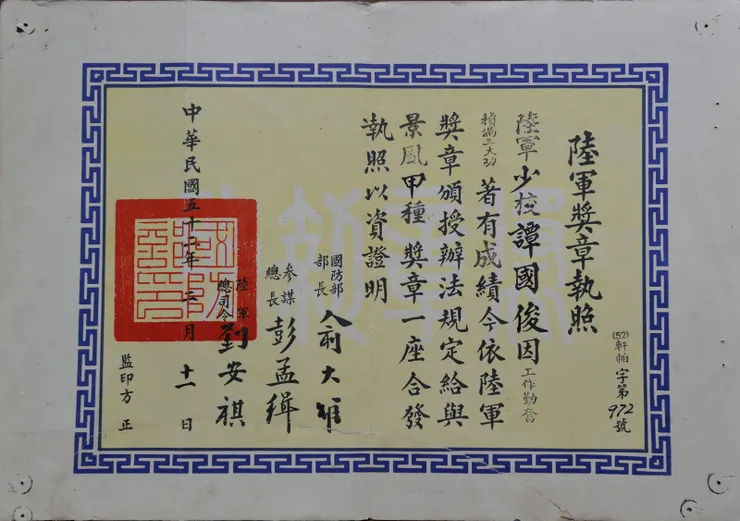 陸軍獎章執照
(52)軒帕字第972號
陸軍少校譚國俊因工作勤奮
積滿三大功著有成績今依陸軍
獎章頒授辦法規定給與
景風甲種獎章一座合發
執照以資證明
國防部部長俞大維
參謀總長彭孟緝
陸軍總司令劉安祺
中華民國五十二年二月十一日
監印方正